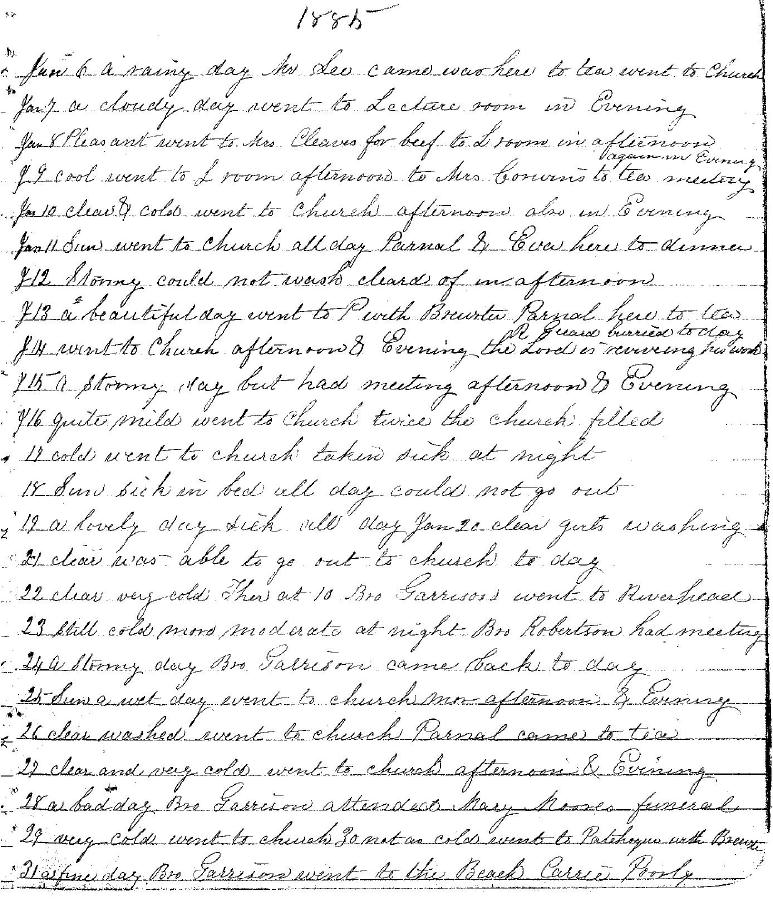 1885
Jan 6 a rainy day Mr Lee came was here to tea went to Church
Jan 7 a cloudy day went to Lecture room in Evening
Jan 8 Pleasant went to Mrs. Cleaves for beef to L room in afternoon
again in Evening
J 9 cool went to L room afternoon to Mrs Corwins to tea meeting
Jan 10 clear & cold went to Church afternoon also in Evening
Jan 11 Sun went to church all day Parnal & Eva here to dinner
J 12 Stormy could not wash cleard of in afternoon
J 13 a beautiful day went to P with Brewster Parnal here to tea
R Guard burried to day
J 14 went to Church afternoon & Evening the Lord is reviving his work
J 15 A Stormy day but had meeting afternoon & Evening
J 16 quite mild went to Church twice the church filled
17 cold went to church taken sick at night
18 Sun sick in bed all day could not go out
19 a lovely day sick all day Jan 20 clear girls washing
21 clear was able to go out to church to day
22 clear very cold Ther at 10 Bro Garrison went to Riverhead
23 still cold more moderate at night Bro Robertson had meeting
24 A Stormy day Bro Garrison came back to day
25 Sun a wet day went to church mor afternoon & Evening
26 clear washed went to church Parnal came to tea
27 clear and very cold went to church afternoon & Evening
28 a bad day Bro Garrison attended Mary Moores funeral
29 very cold went to church 30 not as cold went to Patchogue with Brewste
31 a fine day Bro Garrison went to the Beach Carrie Poorly